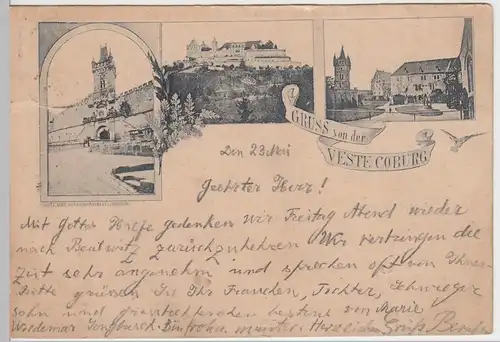 GRUSS von der
VESTE COBURG
Den 23 Mai
Geehrter Herr!
Mit Gottes Hilfe gedenken wir Freitag Abend wieder
nach Beulwitz zurückzukehren Wir verbringen die
Zeit sehr angenehm und sprechen oft von Ihnen
Bitte grüssen Sie Ihr Frauchen, Tochter, Schwieger
sohn und bestens von Marie
Woldemar munter. Herzlichen Gruß